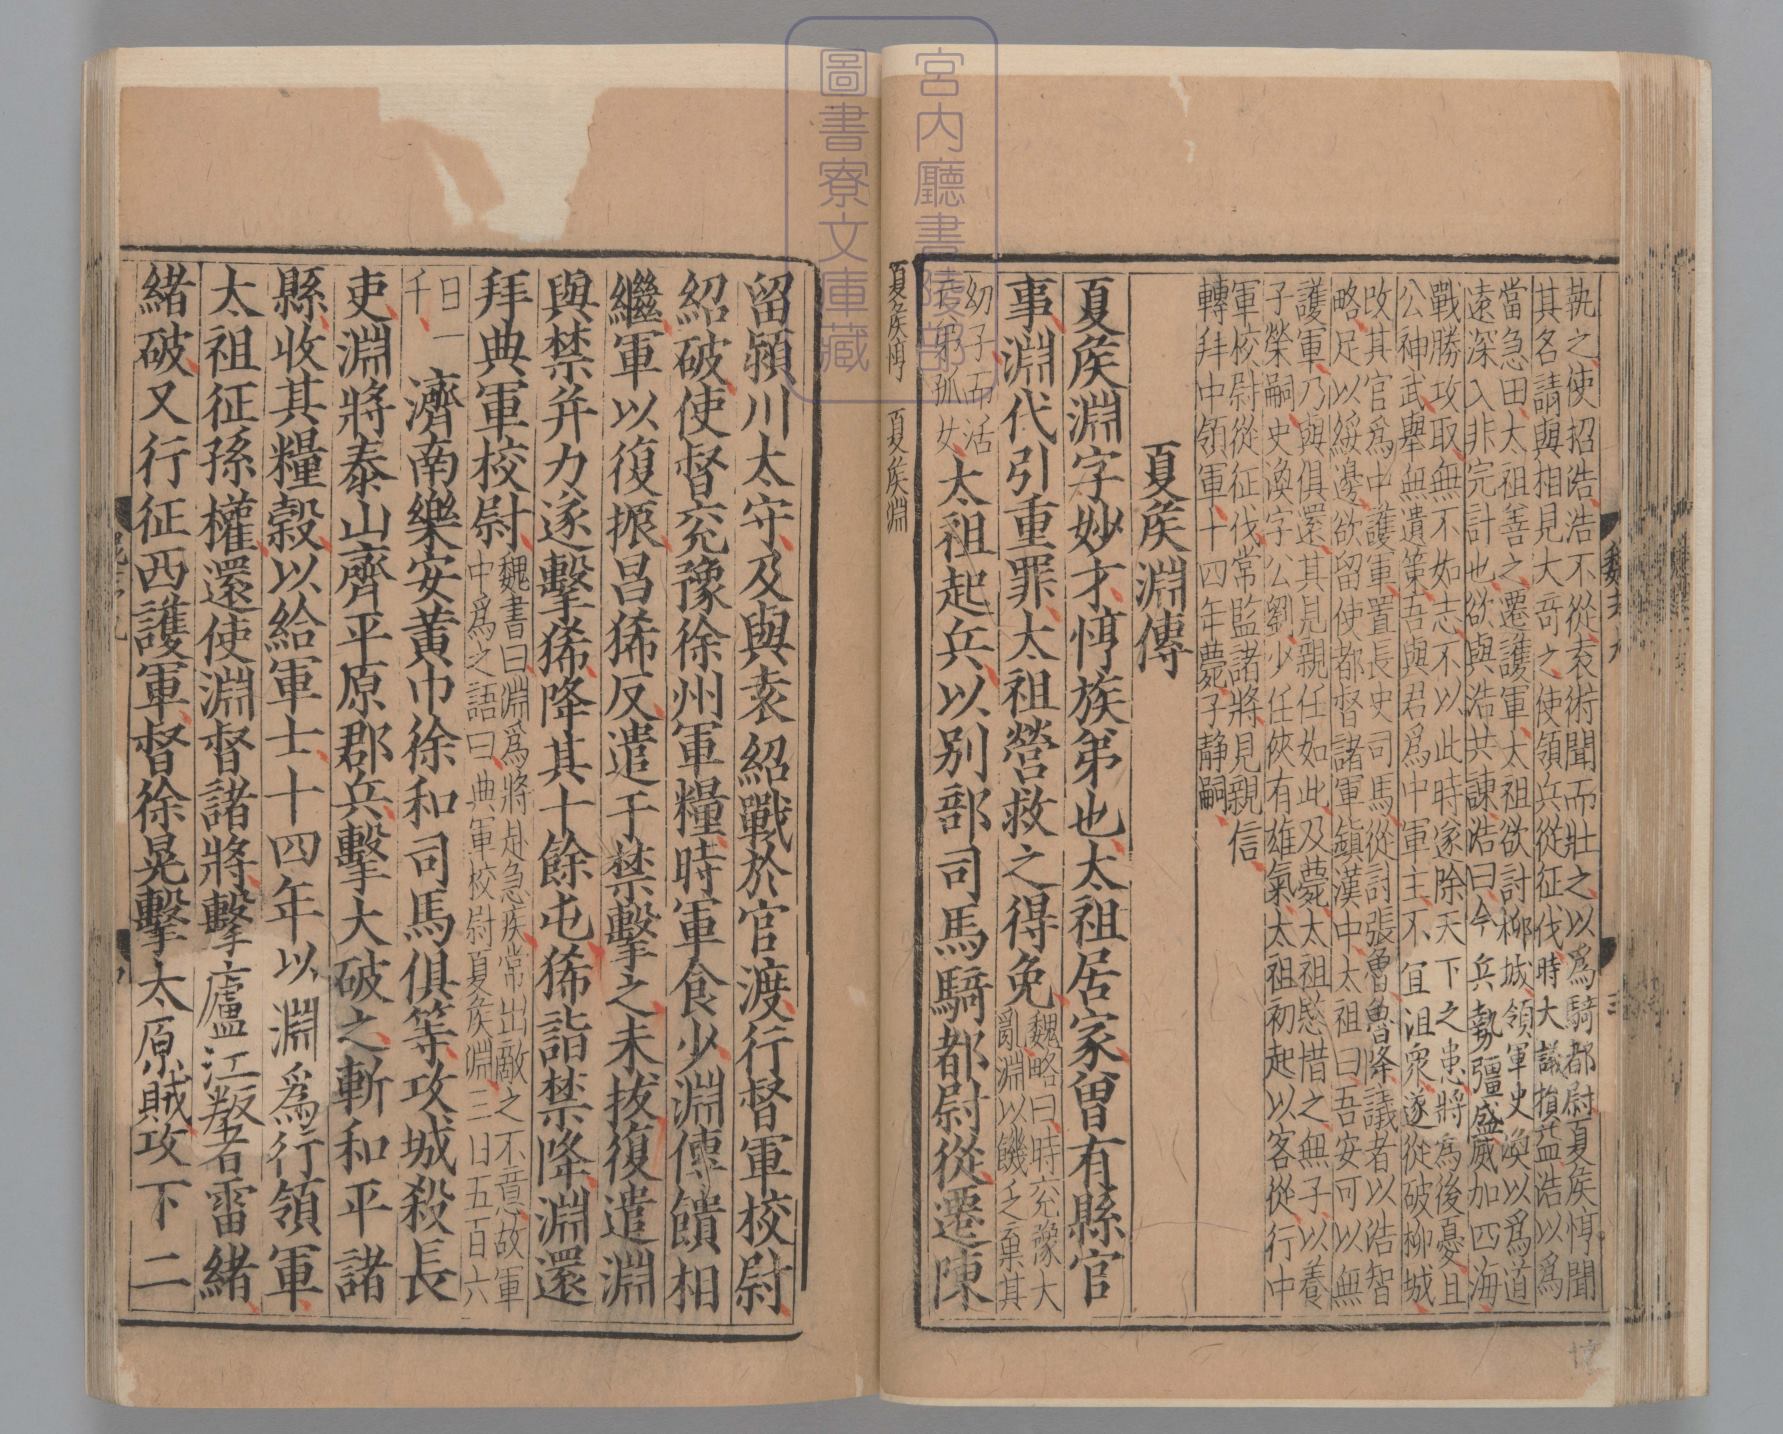 執之使招浩浩不從袁術聞而壯之以爲騎都尉夏侯惇聞
其名請與相見大奇之使領兵從征伐時大議損益浩以爲
當急田太祖善之遷護軍太祖欲討柳城領軍史渙以爲道
遠深入非完計也欲與浩共諫浩曰今兵勢彊盛威加四海
戰勝攻取無不如志不以此時遂除天下之患將爲後憂且
公神武舉無遺策吾與君爲中軍主不宜沮衆遂從破柳城
改其官爲中護軍置長史司馬從討張魯魯降議者以浩智
略足以綏邊欲留使都督諸軍鎮漢中太祖曰吾安可以無
護軍乃與俱還其見親任如此及薨太祖愍惜之無子以養
子榮嗣史渙字公劉少任俠有雄氣太祖初起以客從行中
軍校尉從征伐常監諸將見親信
轉拜中領軍十四年薨子靜嗣
夏侯淵傳
夏侯淵字妙才惇族弟也太祖居家曾有縣官
事淵代引重罪太祖營救之得免魏略曰時兗豫大
亂淵以饑乏棄其
幼子而活
亡弟孤女太祖起兵以别部司馬騎都尉從遷陳
夏侯惇 夏侯淵
留潁川太守及與袁紹戰於官渡行督軍校尉
紹破使督兗豫徐州軍糧時軍食少淵傳饋相
繼軍以復振昌狶反遣于禁擊之未拔復遣淵
與禁并力遂擊狶降其十餘屯狶詣禁降淵還
拜典軍校尉魏書曰淵爲將赴急疾常出敵之不意故軍
中爲之語曰典軍校尉夏侯淵三日五百六
日一
千濟南樂安黄巾徐和司馬俱等攻城殺長
吏淵將泰山齊平原郡兵擊大破之斬和平諸
縣收其糧穀以給軍士十四年以淵爲行領軍
太祖征孫權還使淵督諸將擊廬江叛者雷緒
緒破又行征西護軍督徐晃擊太原賊攻下二
宮内廳書陵部
圖書寮文庫藏